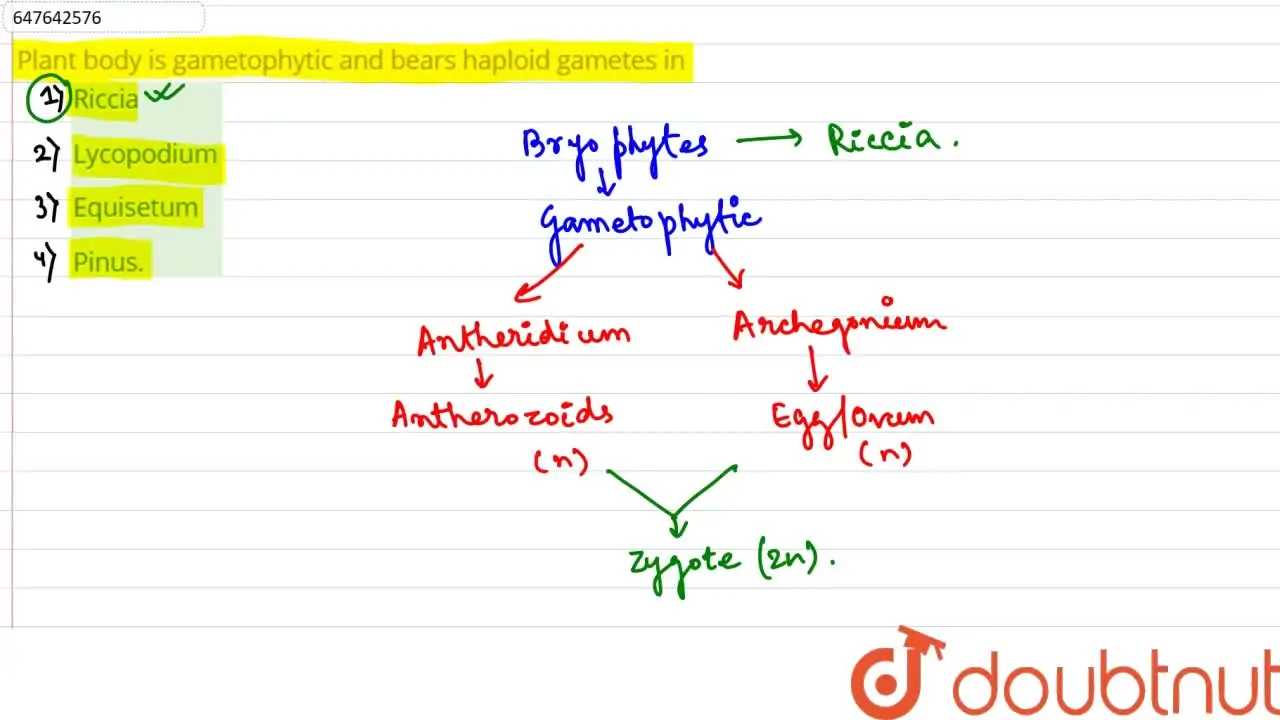 647642576
Plant body is gametophytic and bears haploid gametes in
1) Riccia
2) Lycopodium
3) Equisetum
4) Pinus.
Bryophytes → Riccia.
Gametophytic
Antheridium Archegonium
Antherozoids Egg/Ovum
(n) (n)
Zygote (2n).
doubtnut